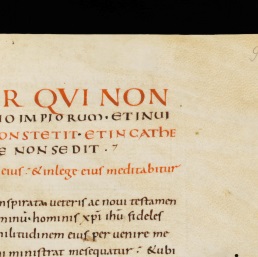 R QVI NON
IO IMPIORUM · ET IN UI
ON STETIT · ET IN CATHE
E NON SEDIT ·
eius · & in lege eius meditabitur
nspirata ueteris ac noui testamen
minū hominis xp̄i ih̄u fideles
militudinem eius peruenire me
ministrat mesequatur · & ubi